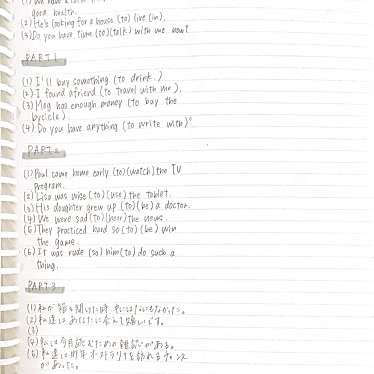 good health.
(2) He's looking for a house (to) live (in).
(3) Do you have time (to)(talk) with me now?
PART1
(1) I'll buy something (to drink.)
(2) I found a friend (to travel with me).
(3) Meg has enough money (to buy the
bycicle).
(4) Do you have anything (to write with)?
PART2
(1) Paul came home early (to)(watch) the TV
program.
(2) Lisa was wise (to)(use) the tablet.
(3) His daughter grew up (to)(be) a doctor.
(4) We were sad (to)(hear) the news.
(5) They practiced hard so (to)(be) win
the game.
(6) It was rude (so) him (to) do such a
thing.
PART3
(1) 私が箱を開けた時、
(2) 私達はあなたに会えて嬉しいです。
(3)
(4) 私は今月読むための雑誌がある。
(5) 私達は昨年オーストラリアを訪れるチャンス
があった。